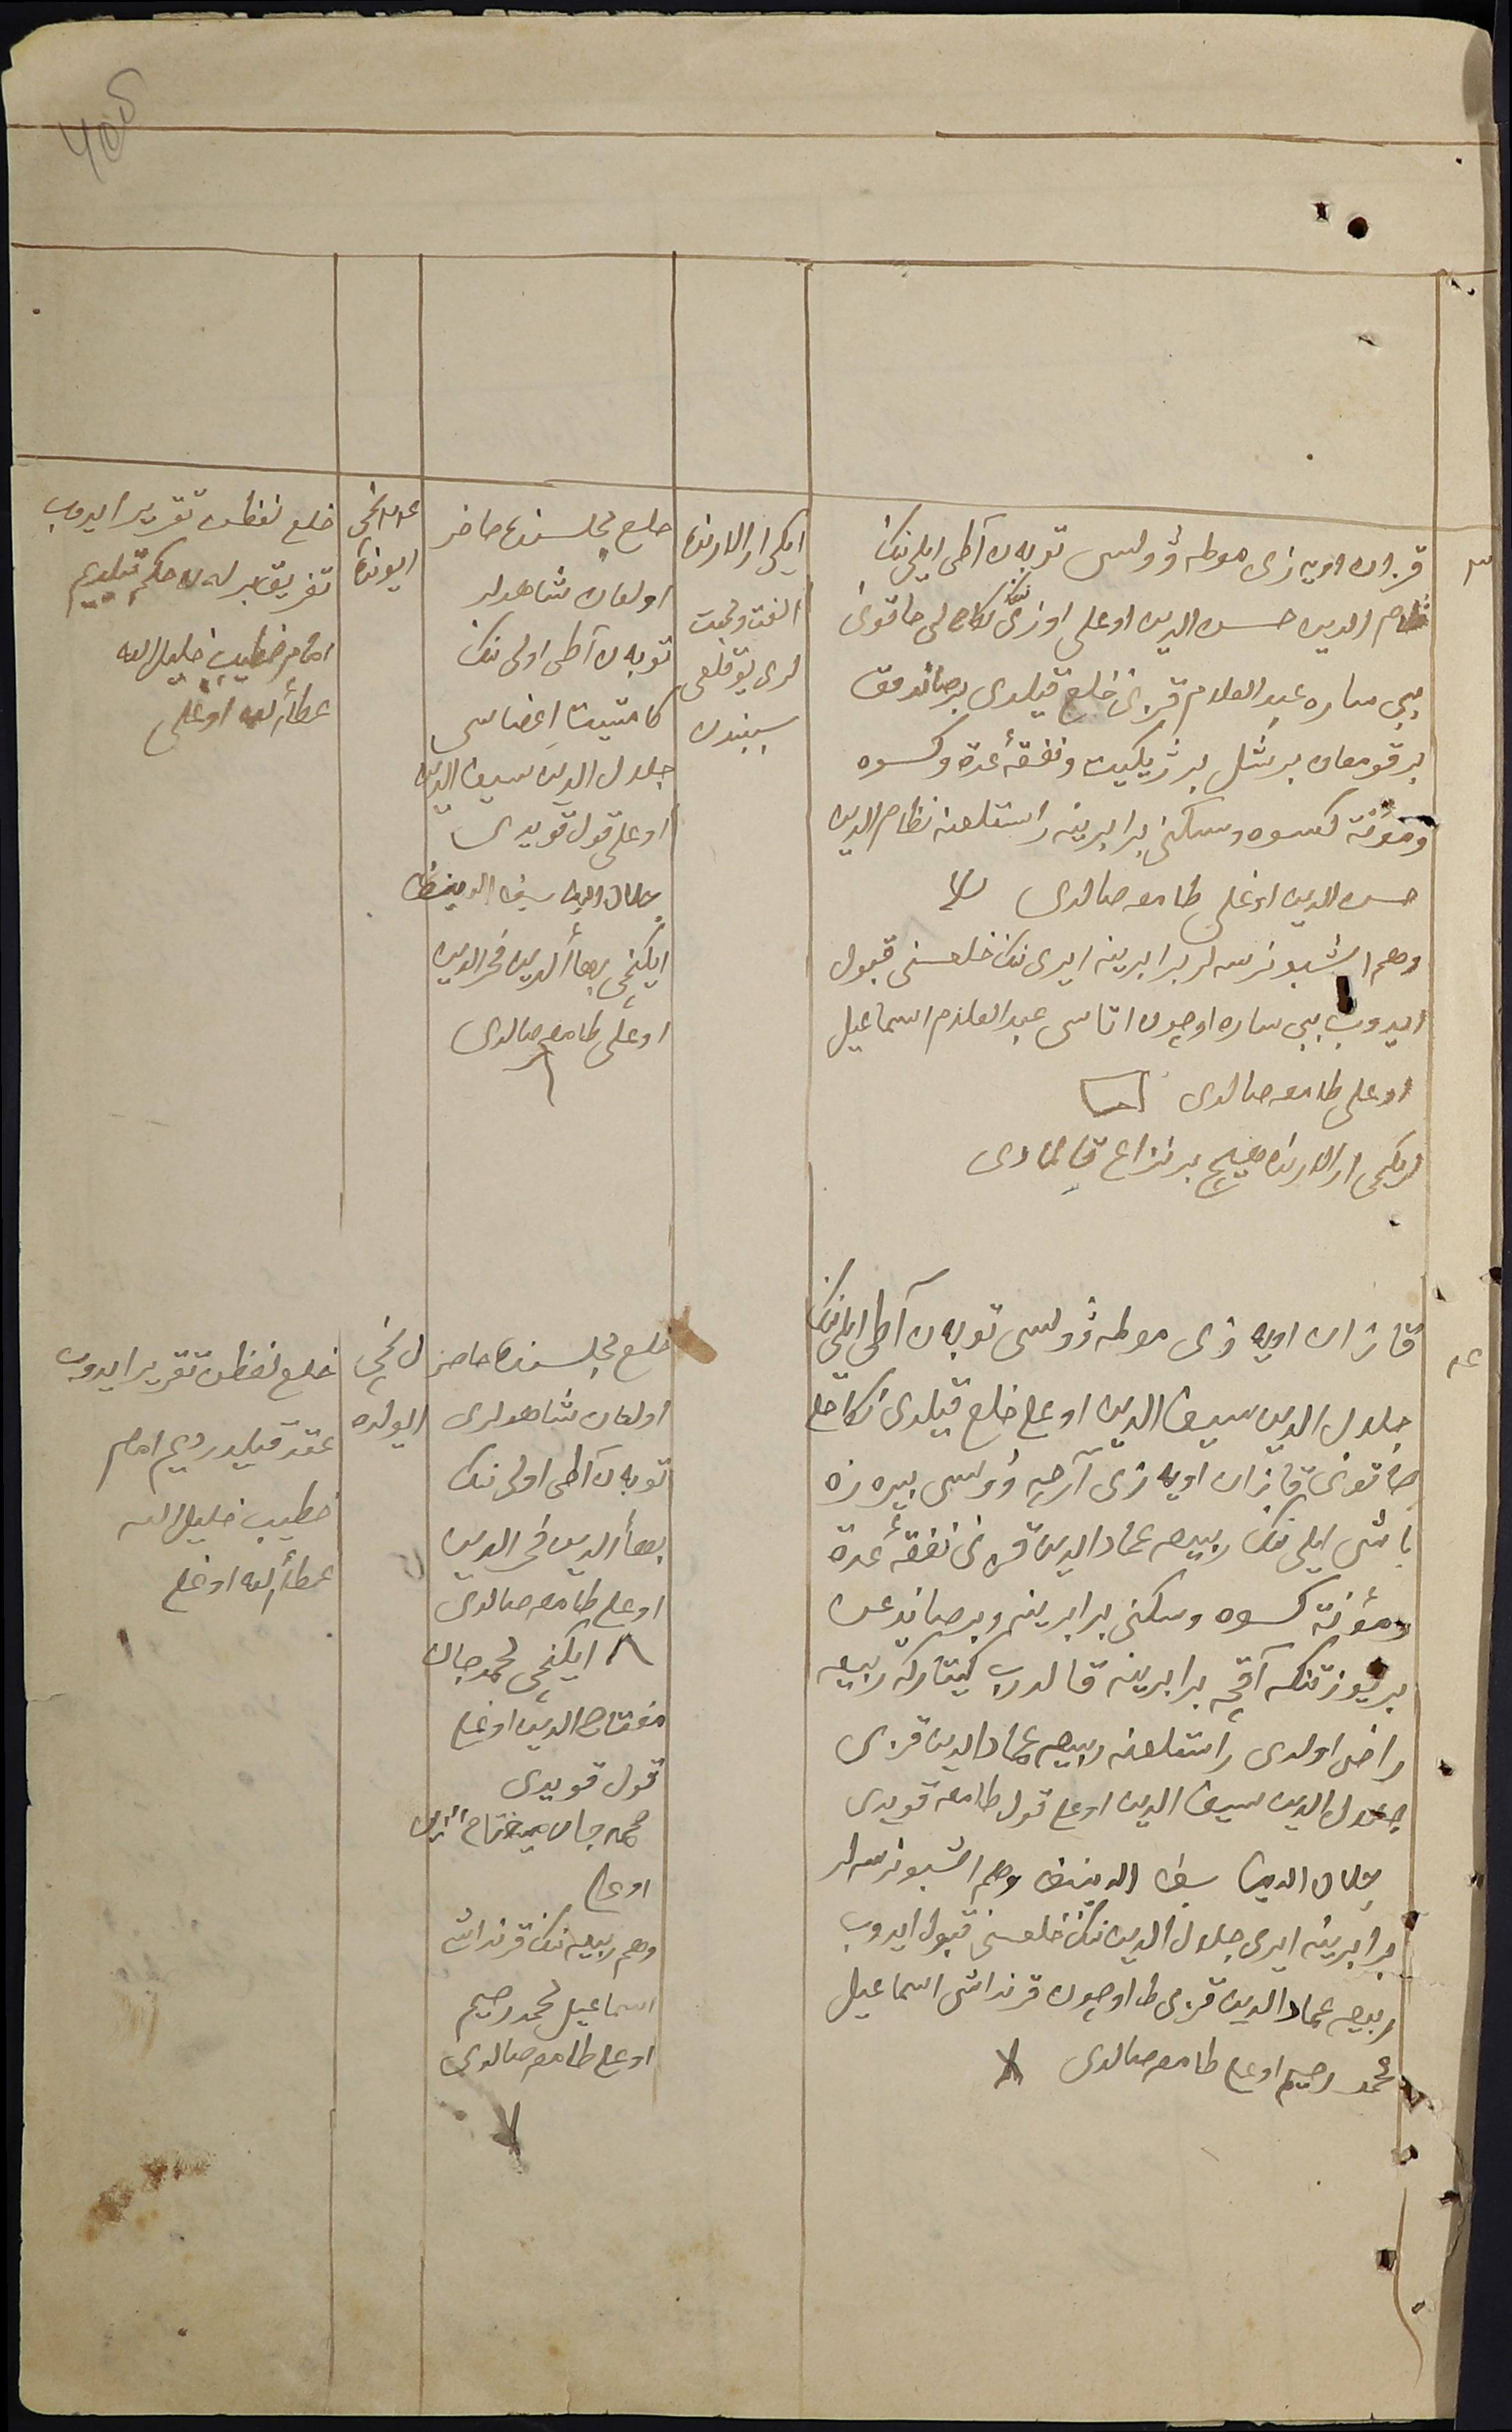 405
٣
قزان اویازی موطه ۋولسی توبه‌ن آطی ایلی‌ننک
نظام الدین حسن الدین اوغلی اوزی‌ننک نکاحلی خاتونی
بیبی ساره عبد العلام قزی‌نی خلع قیلدی بر صاندوق
بر قومغان بر شل بر ژیکیت ونفقۀ عدة وکسوه
ومؤنة کسوه وسکنی برابرینه راستلغنه نظام الدین
حسن الدین اوغلی طامغه صالدی
وهم اشبو نرسه‌لر برابرینه ایری‌ننک خلعسنی قبول
ایدوب بیبی ساره اوچون اتاسی عبد العلام اسماعیل
اوغلی طامغه صالدی
ایکی ارالارنده هیچ بر نزاع قالمادی
ایکی ارالارنده
الفت ومحبت
لری یوقلغی
سببندن
خلع مجلسنده حاضر
اولغان شاهدلر
توبه‌ن آطی اولی ننک
کامتیت اعضاسی
جلال الدین سیف الدین
اوغلی قول قویدی
جلال الدین سیف الدینف
ایکنچی بهاء الدین فخر الدین
اوغلی طامغه صالدی
ایونده
خلع لفظن تقریر ایدوب
تفریق برله‌ن حکم قیلدیم
امام خطیب خلیل الله
عطاء الله اوغلی
٤
قازان اویازی موطه ۋولسی توبه‌ن آطی ایلی‌ننک
جلال الدین سیف الدین اوغلی خلع قیلدی نکاحلی
خاتونی قازان اویازی آرچه ۋولسی بیره‌زه
باشی ایلی‌ننک ربیعه عماد الدین قزی‌نی نفقۀ عدة
ومؤنة کسوه وسکنی برابرینه وبر صاندوغن
بر یوز تنکه آقچه برابرینه قالدرب کیتارکه ربیعه
راضی اولدی راستلغنه ربیعه عماد الدین قزی
جلال الدین سیف الدین اوغلی قول طامغه قویدی
جلال الدین سیف الدینف وهم اشبو نرسه‌لر
برابرینه ایری جلال الدین‌ننک خلعسنی قبول ایدوب
ربیعه عماد الدین قزی اوچون قرنداشی اسماعیل
محمد رحیم اوغلی طامغه صالدی
خلع مجلسنده حاضر
اولغان شاهدلری
توبه‌ن آطی اولی ننک
بهاء الدین فخر الدین
اوغلی طامغه صالدی
ایکنچی محمد جان
مفتاح الدین اوغلی
قول قویدی
محمد جان مفتاح الدین
اوغلی
وهم ربیعه‌ننک قرنداشی
اسماعیل محمد رحیم
اوغلی طامغه صالدی
ایولده
خلع لفظن تقریر ایدوب
عقد قیلدردیم امام
خطیب خلیل الله
عطاء الله اوغلی